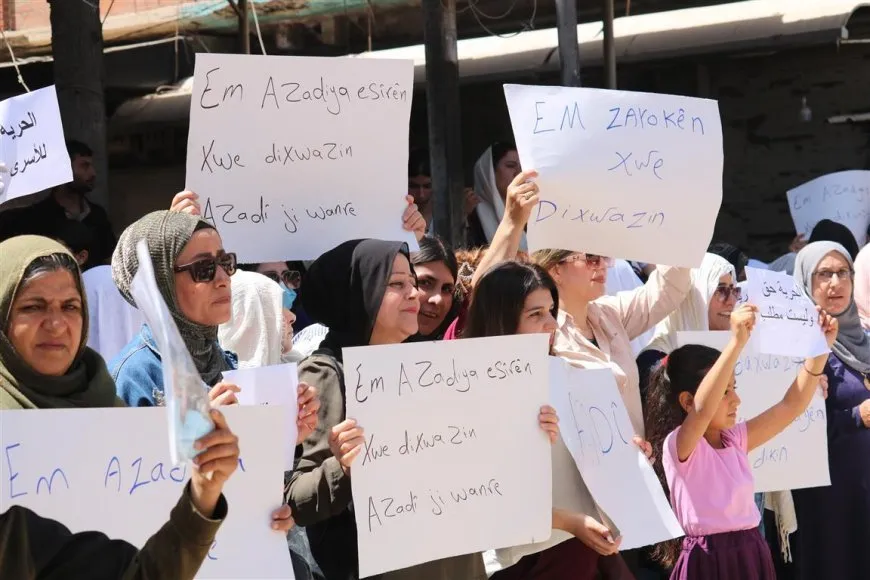 الحرية
للأسرى
Em Azadiya esirên
Xwe dixwazin
Azadî ji wanre
Em zarokên
xwe
Dixwazin
حرية حق
وليست مطلب
Em Azadiya esirên
Xwe dixwazin
Azadî ji wanre
Em
dikin